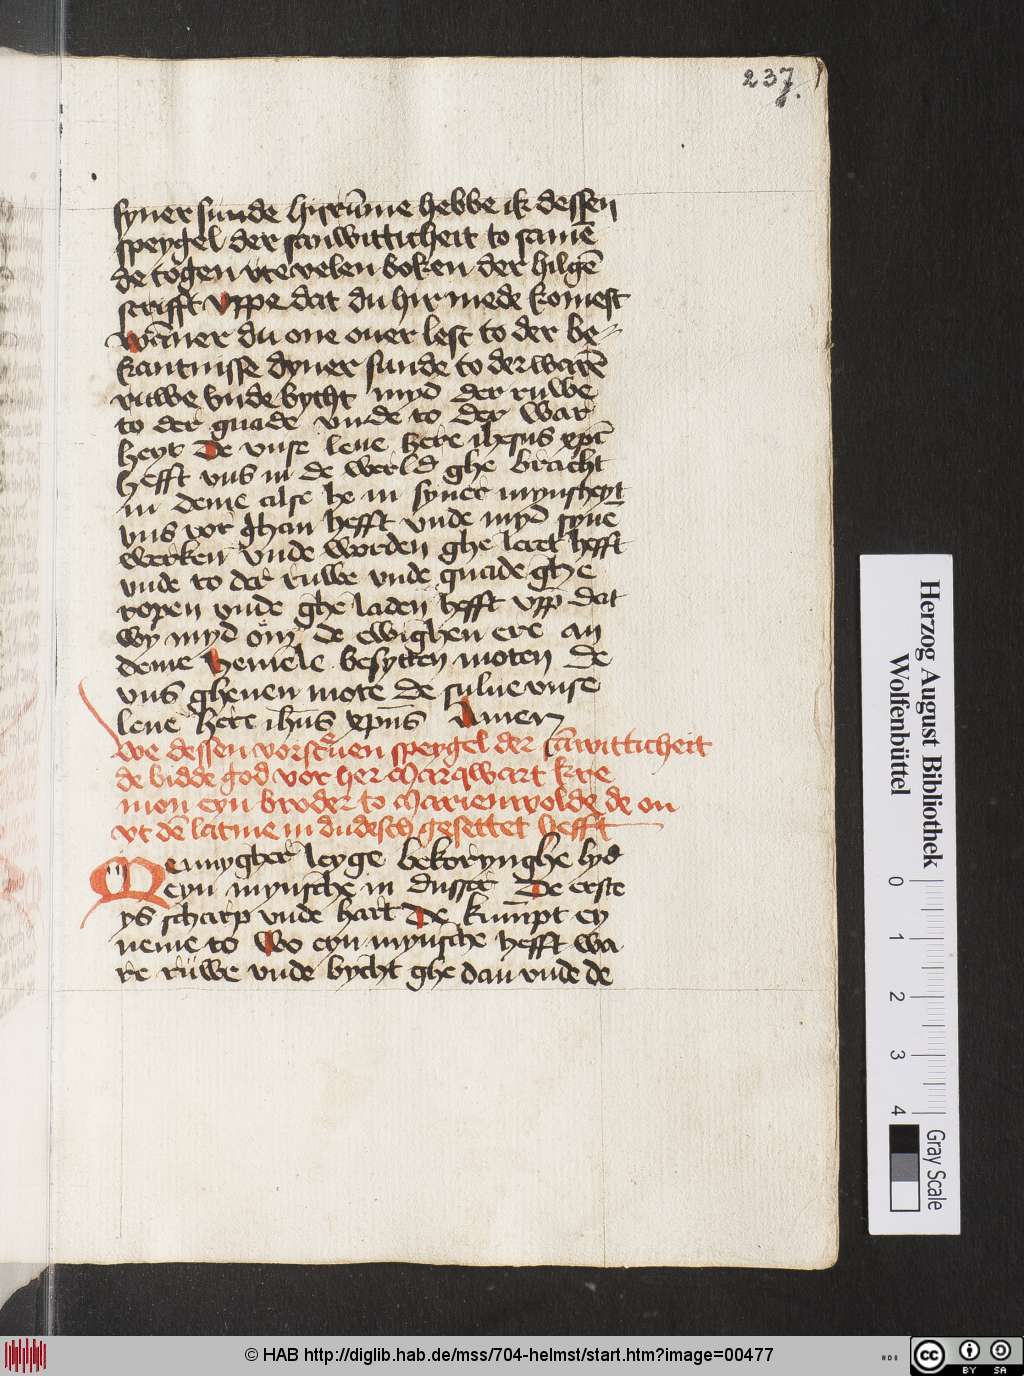 237.
syner sunde hirūme hebbe ik dessen
speygel der sanwitticheit to samē
de togen vte velen boken der hilgē
scrifft vppe dat du hir mede komest
wāner du one ouer lest to der be-
kantnisse dyner sunde to der warē
ruwe vnde bycht myd der ruwe
to der gnade vnde to der war
heyt De vnse leue here ihesus xpc̄
hefft vns in de werld ghe bracht
in deme alse he in syner mynscheyt
vns vor ghan hefft vnde myd synē
werken vnde worden ghe leret hefft
vnde to der ruwe vnde gnade ghe
ropen vnde ghe laden hefft vpp̄ dat
wy myd öm de ewighen ere an
deme hemele besytten moten De
vns gheuen mote de sulue vnse
leue here ih̄us xpūs Amen
We dessen vorscruen speygel der sāwitticheit
de bidde god vor her Marqwart kre
mon eyn broder to Marienwolde de on
vt dē latine in dudesch gesettet hefft
Mennygher leyge bekorynghe lyd
eyn mynsche in dusser De erste
ys scharp vnde hart De kūmpt ey
neme to Wo eyn mynsche hefft wa
re rüwe vnde bycht ghe dan vnde de
Herzog August Bibliothek
Wolfenbüttel
0 1 2 3 4
Gray Scale
© HAB http://diglib.hab.de/mss/704-helmst/start.htm?image=00477
cc BY SA